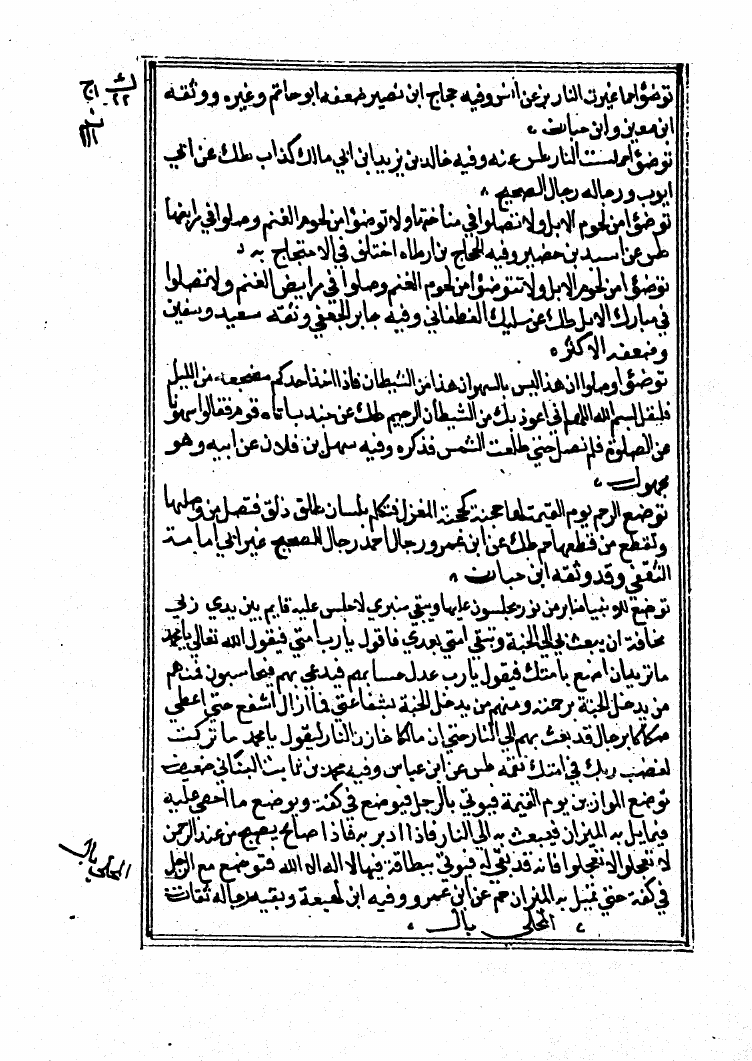 توضؤا مما غيرت النار بز عن انس وفيه حجاج ابن نصير ضعفه ابو حاتم وغيره ووثقه
ابن معين وابن حبان
توضؤا مما مست النار طس عنه وفيه خالد بن يزيد ابن ابي مالك كذاب طك عن ابي
ايوب ورجاله رجال الصحيح
توضؤا من لحوم الابل ولا تصلوا في مناختها ولا توضؤا من لحوم الغنم وصلوا في مرابضها
طس عن اسيد بن حضير وفيه الحجاج بن ارطاه اختلف في الاحتجاج به
توضؤا من لحوم الابل ولا تتوضؤا من لحوم الغنم وصلوا في مرابض الغنم ولا تصلوا
في مبارك الابل طك عن سليك الغطفاني وفيه جابر الجعفي وثقه سعيد وسفين
وضعفه الاكثر
توضؤا وصلوا ان هذا ليس بالسهو ان هذا من الشيطان فاذا اخذ احدكم مضجعه من الليل
فليقل بسم الله اللهم اني اعوذ بك من الشيطان الرجيم طك عن جندب اتاه قوم فقالوا سهونا
عن الصلوة فلم نصل حتي طلعت الشمس فذكره وفيه سهل بن فلان عن ابيه وهو
مجهول
توضع الرحم يوم القيمة لها حجنة كحجنة المغزل فتكلم بلسان طلق ذلق فتصل من وصلها
وتقطع من قطعها حم طك عن ابن عمرو رجال احمد رجال الصحيح غير ابي امامة
الثقفي وقد وثقه ابن حبان
توضع للانبيا منابر من نور يجلسون عليها ويبقي منبري لا اجلس عليه قايم بين يدي ربي
مخافة ان يبعث بي الي الجنة وتبقي امتي بعدي فاقول يا رب امتي فيقول الله تعالي يا محمد
ما تريد ان اصنع بامتك فيقول يا رب عدل حسابهم فيدعي بهم فيحاسبون فمنهم
من يدخل الجنة برحمته ومنهم من يدخل الجنة بشفاعتي فما ازال اشفع حتي اعطي
صكاكا برجال قد بعث بهم الي النار حتي ان مالكا خازن النار ليقول يا محمد ما تركت
لغضب ربك في امتك نقمه طس عن ابن عباس وفيه محمد بن ثابت البناني ضعيف
توضع الموازين يوم القيمة فيوتي بالرجل فيوضع في كفة ويوضع ما احصي عليه
فتمايل به الميزان فيبعث به الي النار فاذا ادبر به فاذا صائح يصيح من عند الرحمن
لا تعجلوا لا تعجلوا فانه قد بقي له فيوتي ببطاقة فيها لا اله الا الله فتوضع مع الرجل
في كفة حتي تميل به الميزان حم عن ابن عمرو وفيه ابن لهيعة وبقيه رجاله ثقات
المحلي بال
المحلي بال